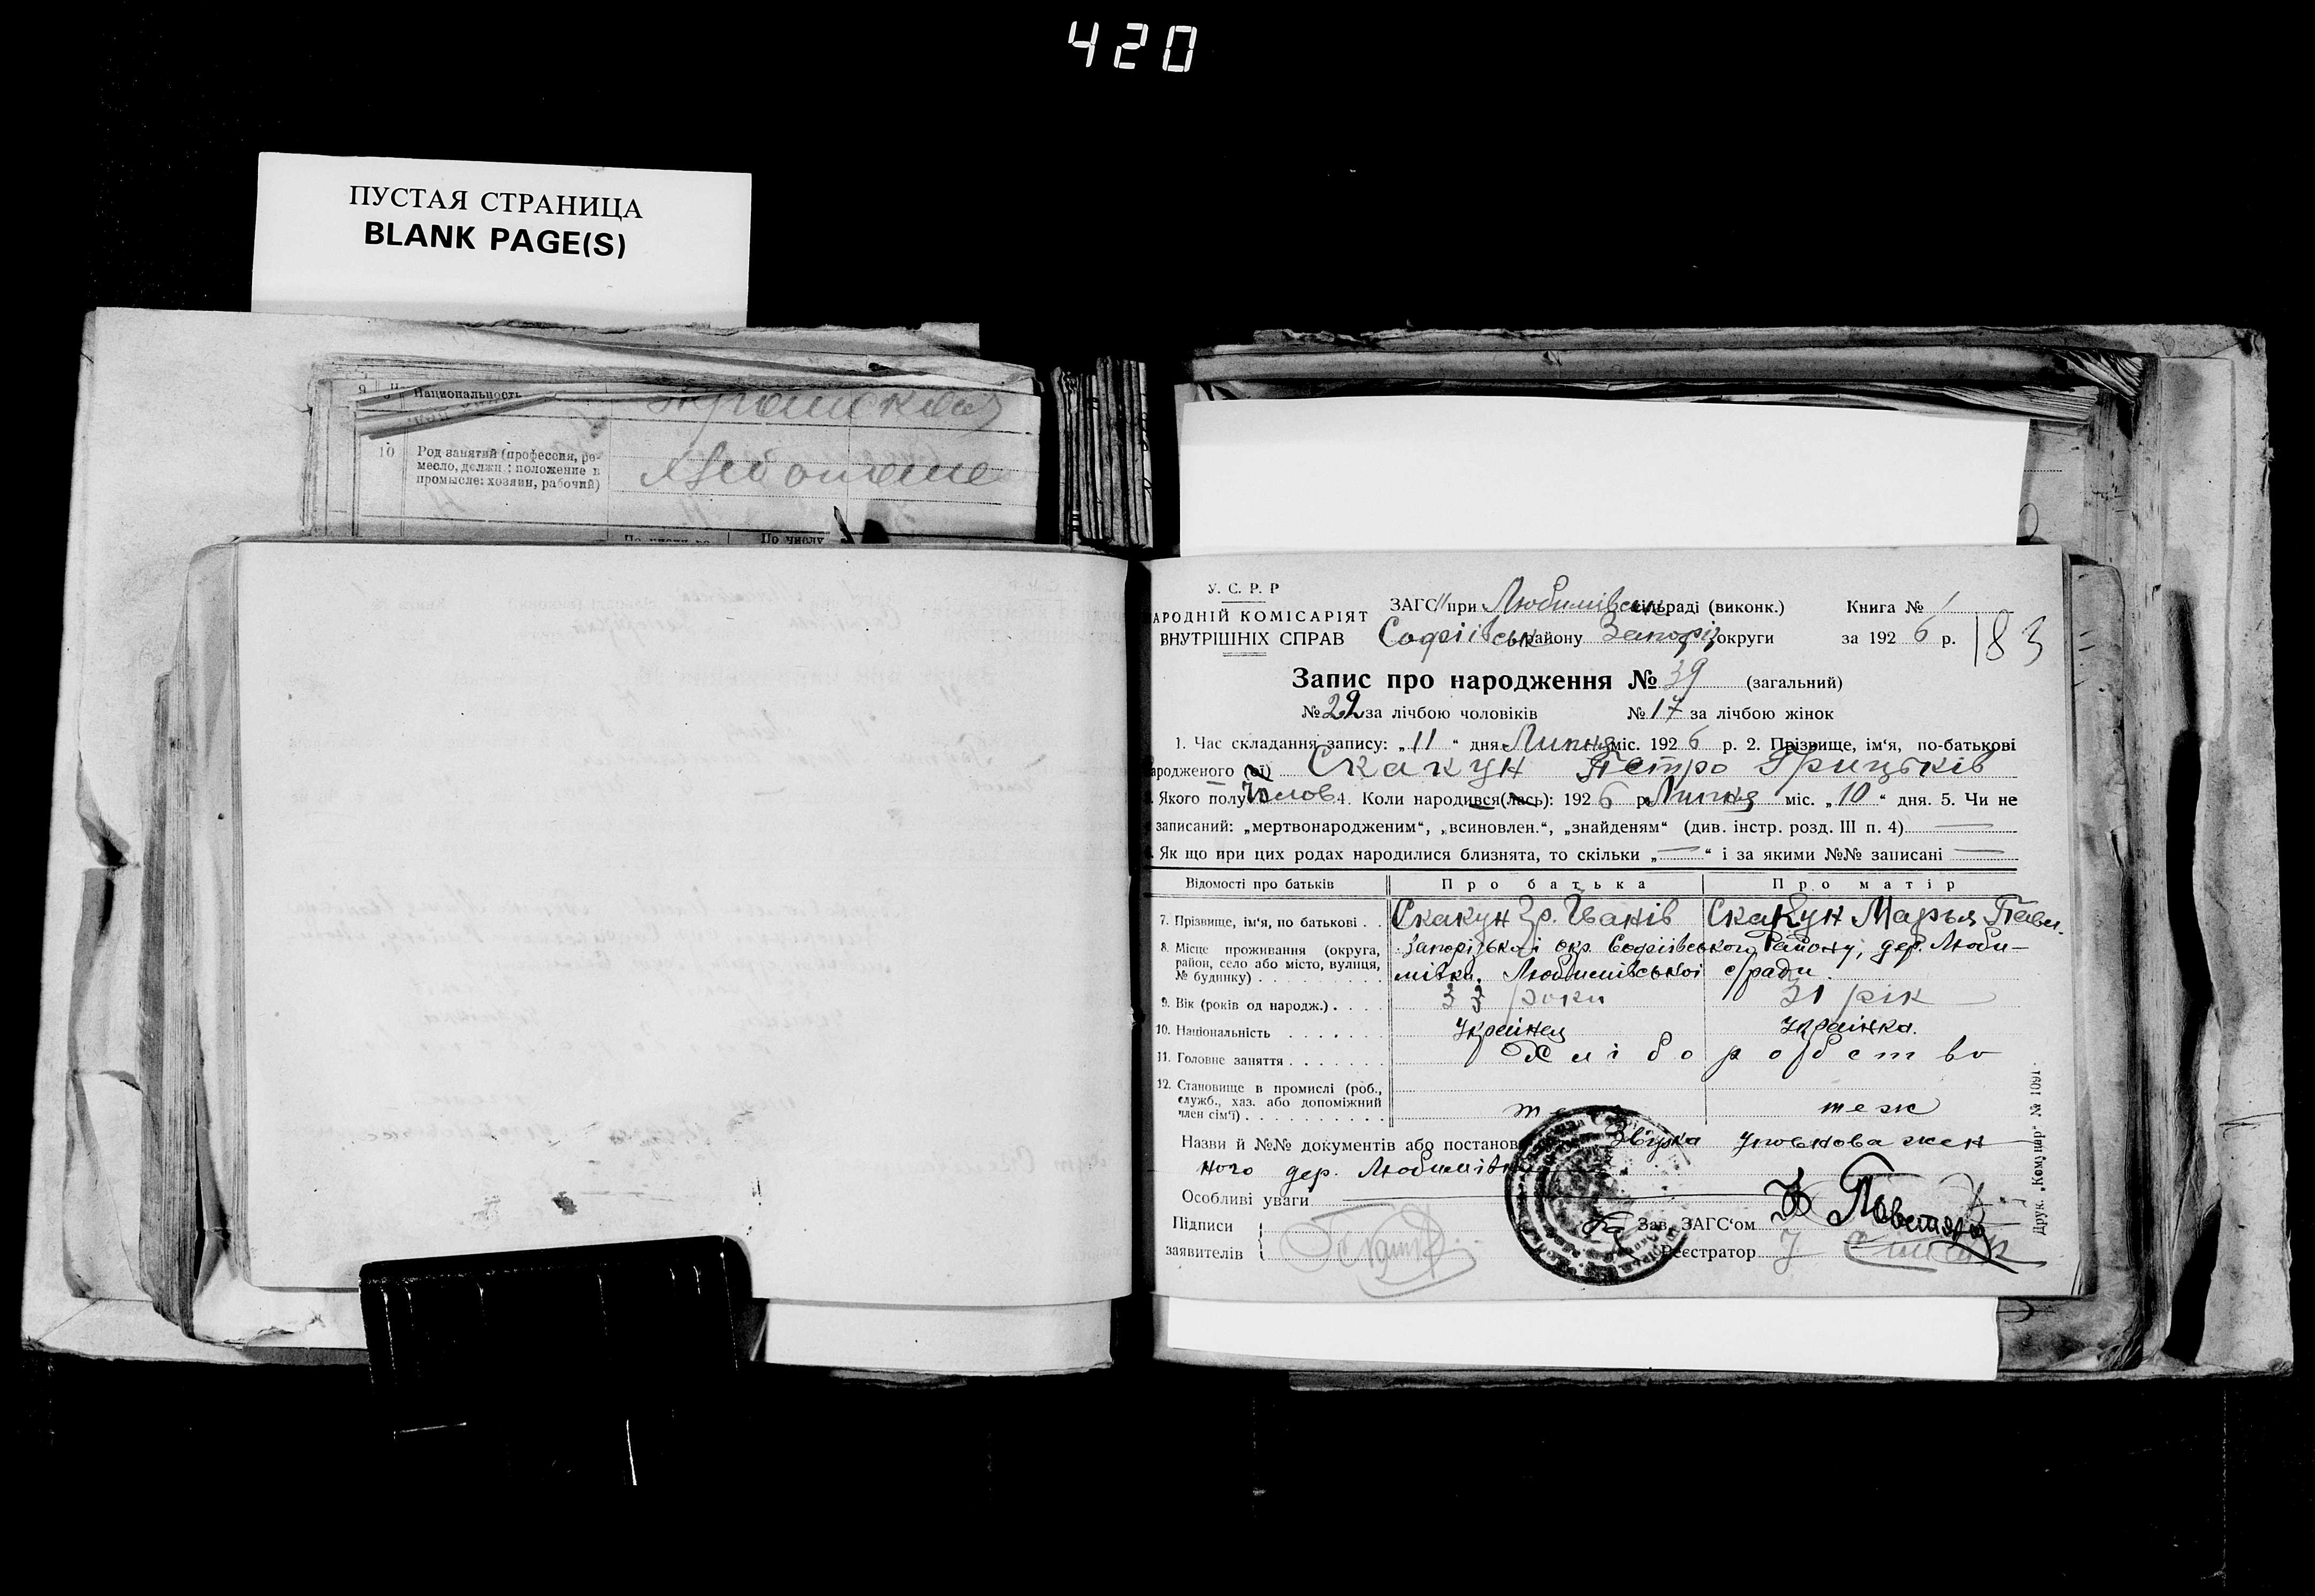 420
ПУСТАЯ СТРАНИЦА
BLANK PAGE(S)
9 Национальность
10 Род занятий (профессия, ре-
месло, должн.: положение в
промысле: хозяин, рабочий)
По числу
У. С. Р. Р
АРОДНІЙ КОМІСАРІЯТ
ВНУТРІШНІХ СПРАВ
ЗАГС при Любимівськ сільраді (виконк.) Книга № 1
Софіівськ району Запоріз округи за 1926 р.
183
Запис про народження № 39 (загальний)
№ 22 за лічбою чоловіків № 17 за лічбою жінок
1. Час складання запису: „11“ дня Липня міс. 1926 р. 2. Прізвище, ім‘я, по-батькові
ародженого (ої) Скакун Петро Грицьків
Якого полу Чолов. 4. Коли народився(лась): 1926 р. Липня міс. „10“ дня. 5. Чи не
записаний: „мертвонародженим“, „всиновлен.“, „знайденям“ (див. інстр. розд. III п. 4) —
Як що при цих родах народилися близнята, то скільки „—“ і за якими №№ записані —
Відомості про батьків Про батька Про матір
7. Прізвище, ім‘я, по батькові . . Скакун Гр. Іванів Скакун Марья Павл.
8. Місце проживання (округа,
район, село або місто, вулиця,
№ будинку)
Запорізькоі окр. Софіівського Району, дер. Люби-
мівка. Любимівськоі с/ради.
9. Вік (років од народж.) . . . 33 роки 31 рік
10. Національність Украінец Украінка.
11. Головне заняття Хліборобство
12. Становище в промислі (роб.,
служб., хаз. або допоміжний
член сім‘ї) теж
Назви й №№ документів або постанов Звістка уповноважен
ного дер. Любимівки
Особливі уваги
Підписи
заявителів
Зав. ЗАГС‘ом
Реєстратор
Друк. „Комунар“ № 1091